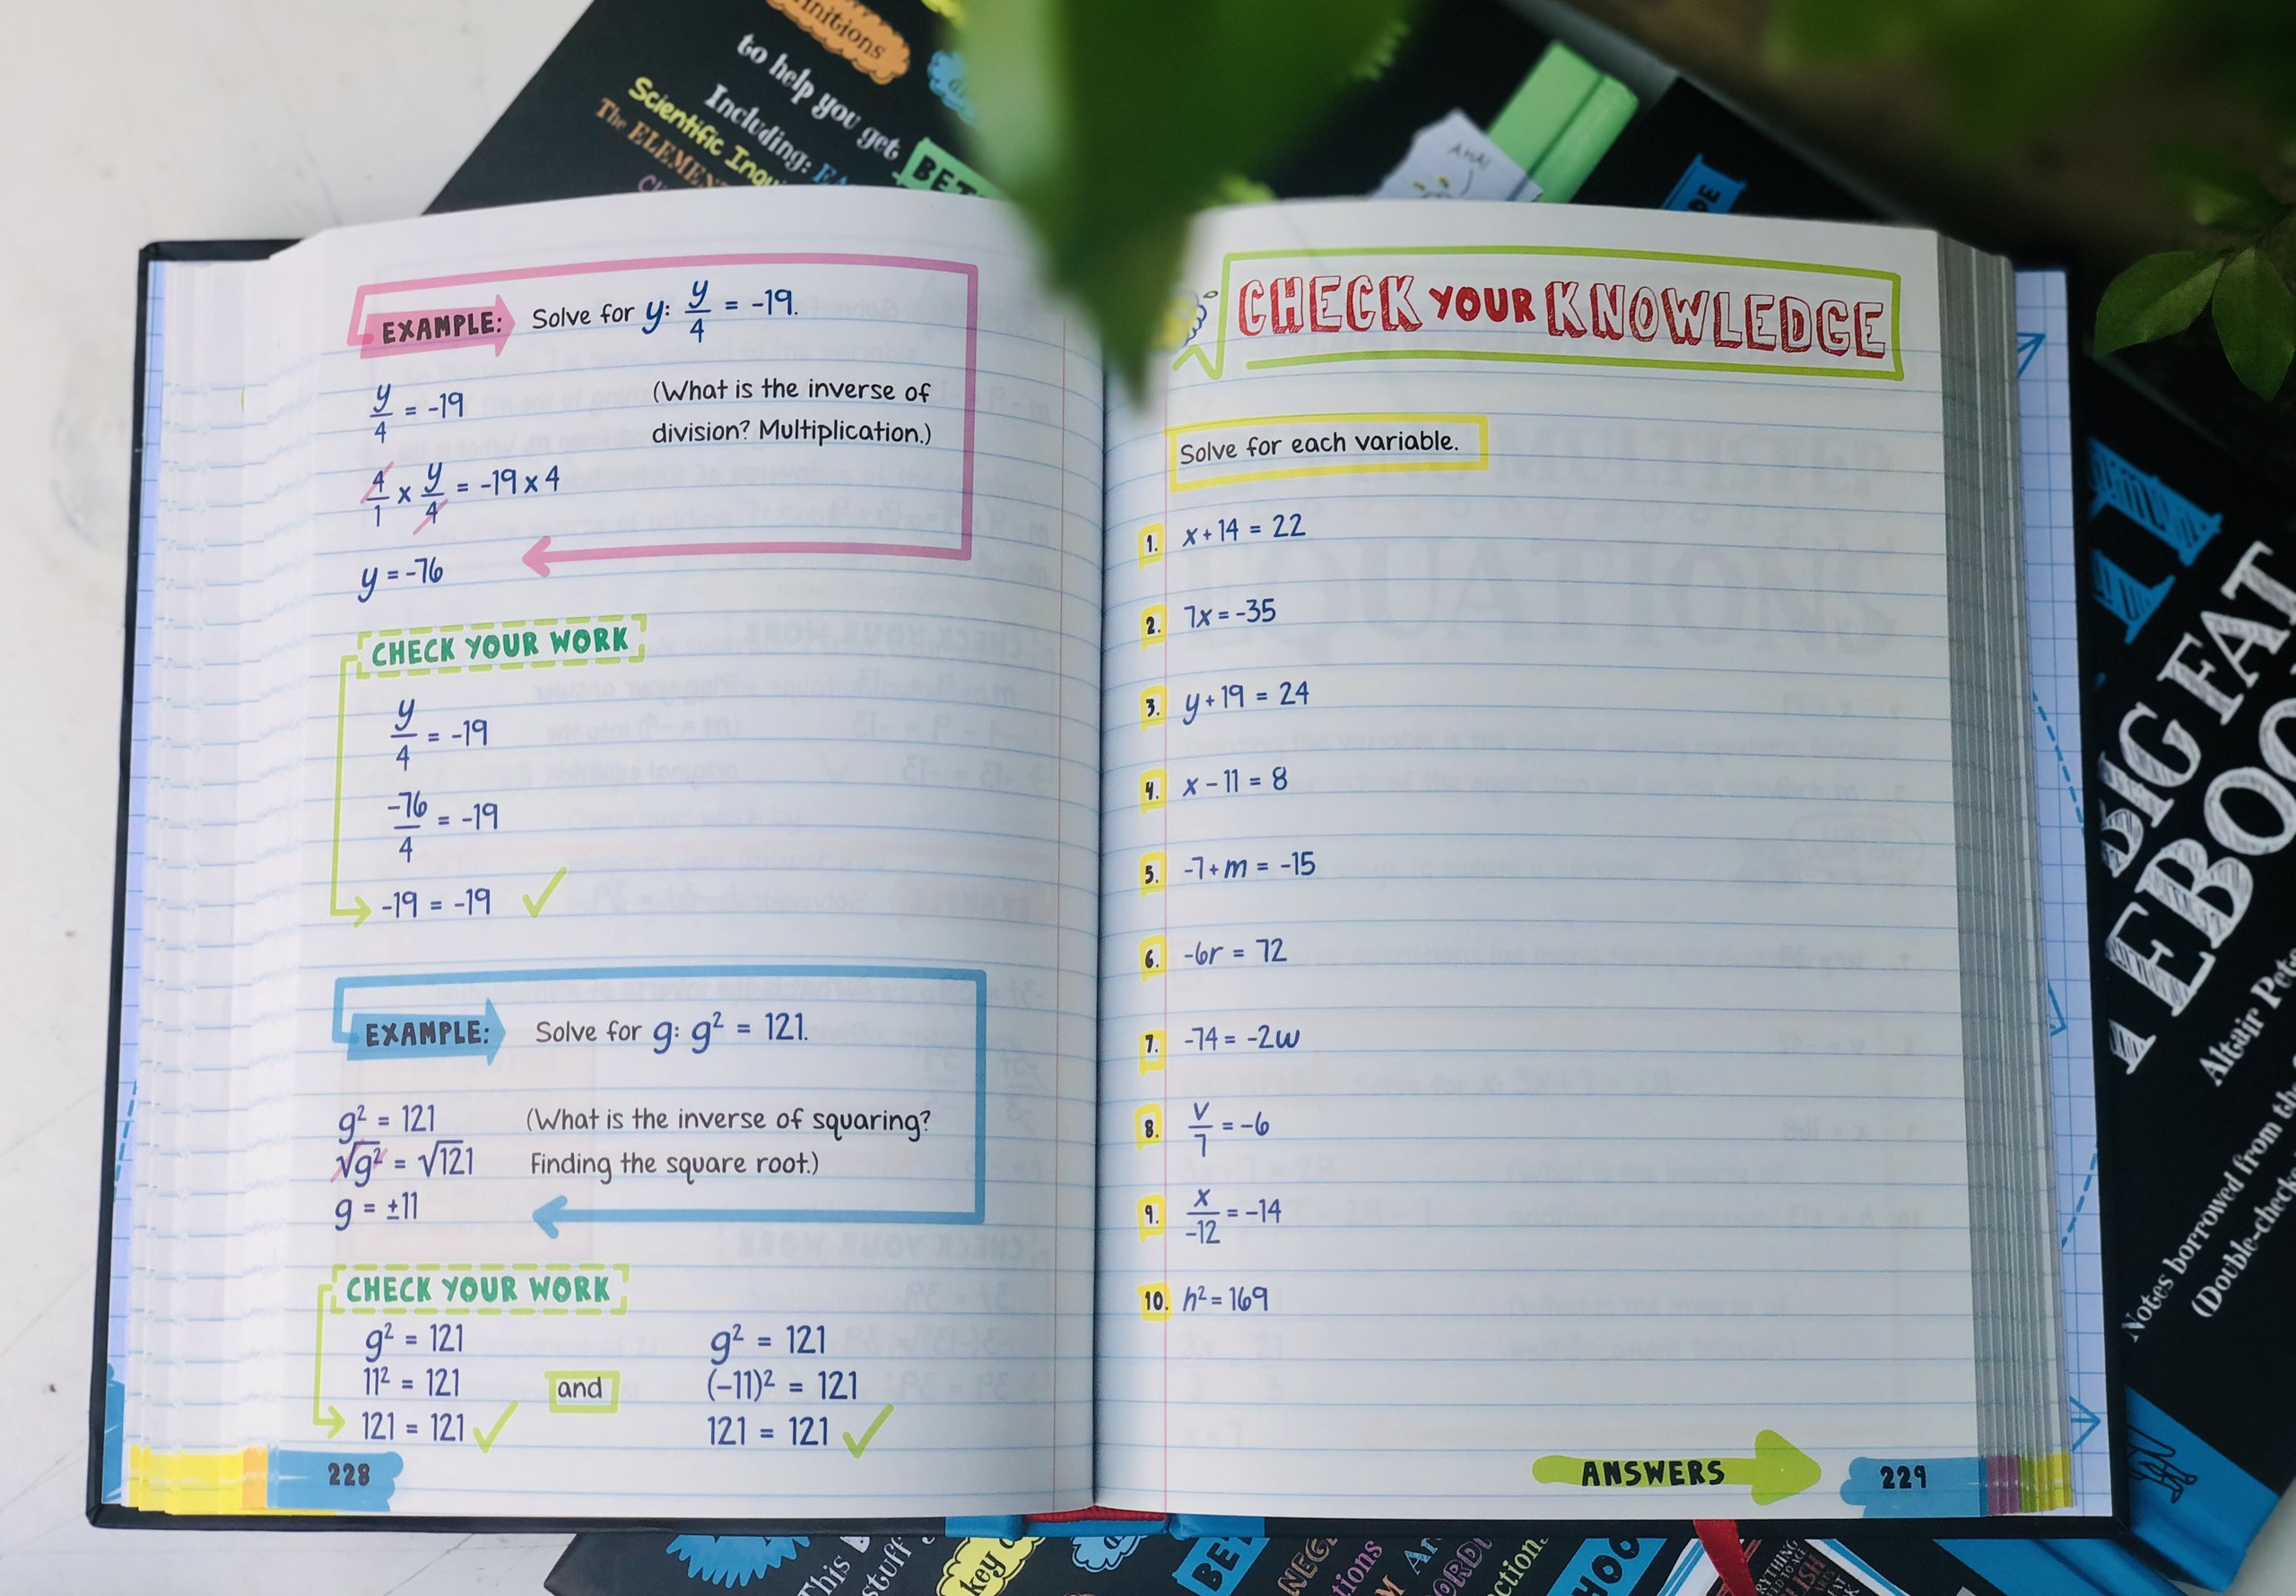 to help you get
Including:
Scientific
The
EXAMPLE: Solve for y: y/4 = -19.
y/4 = -19
(What is the inverse of
division? Multiplication.)
4/1 x y/4 = -19 x 4
y = -76
CHECK YOUR WORK
y/4 = -19
-76/4 = -19
-19 = -19 ✓
EXAMPLE: Solve for g: g² = 121.
g² = 121
(What is the inverse of squaring?
√g² = √121
Finding the square root.)
g = ±11
CHECK YOUR WORK
g² = 121
11² = 121
121 = 121 ✓
and
g² = 121
(-11)² = 121
121 = 121 ✓
228
CHECK YOUR KNOWLEDGE
Solve for each variable.
1. x + 14 = 22
2. 7x = -35
3. y + 19 = 24
4. x - 11 = 8
5. -7 + m = -15
6. -6r = 72
7. -74 = -2w
8. v/7 = -6
9. x/-12 = -14
10. h² = 169
ANSWERS
229
AHA!
BIG FAT
Altair
Notes borrowed from
This
stuff
key